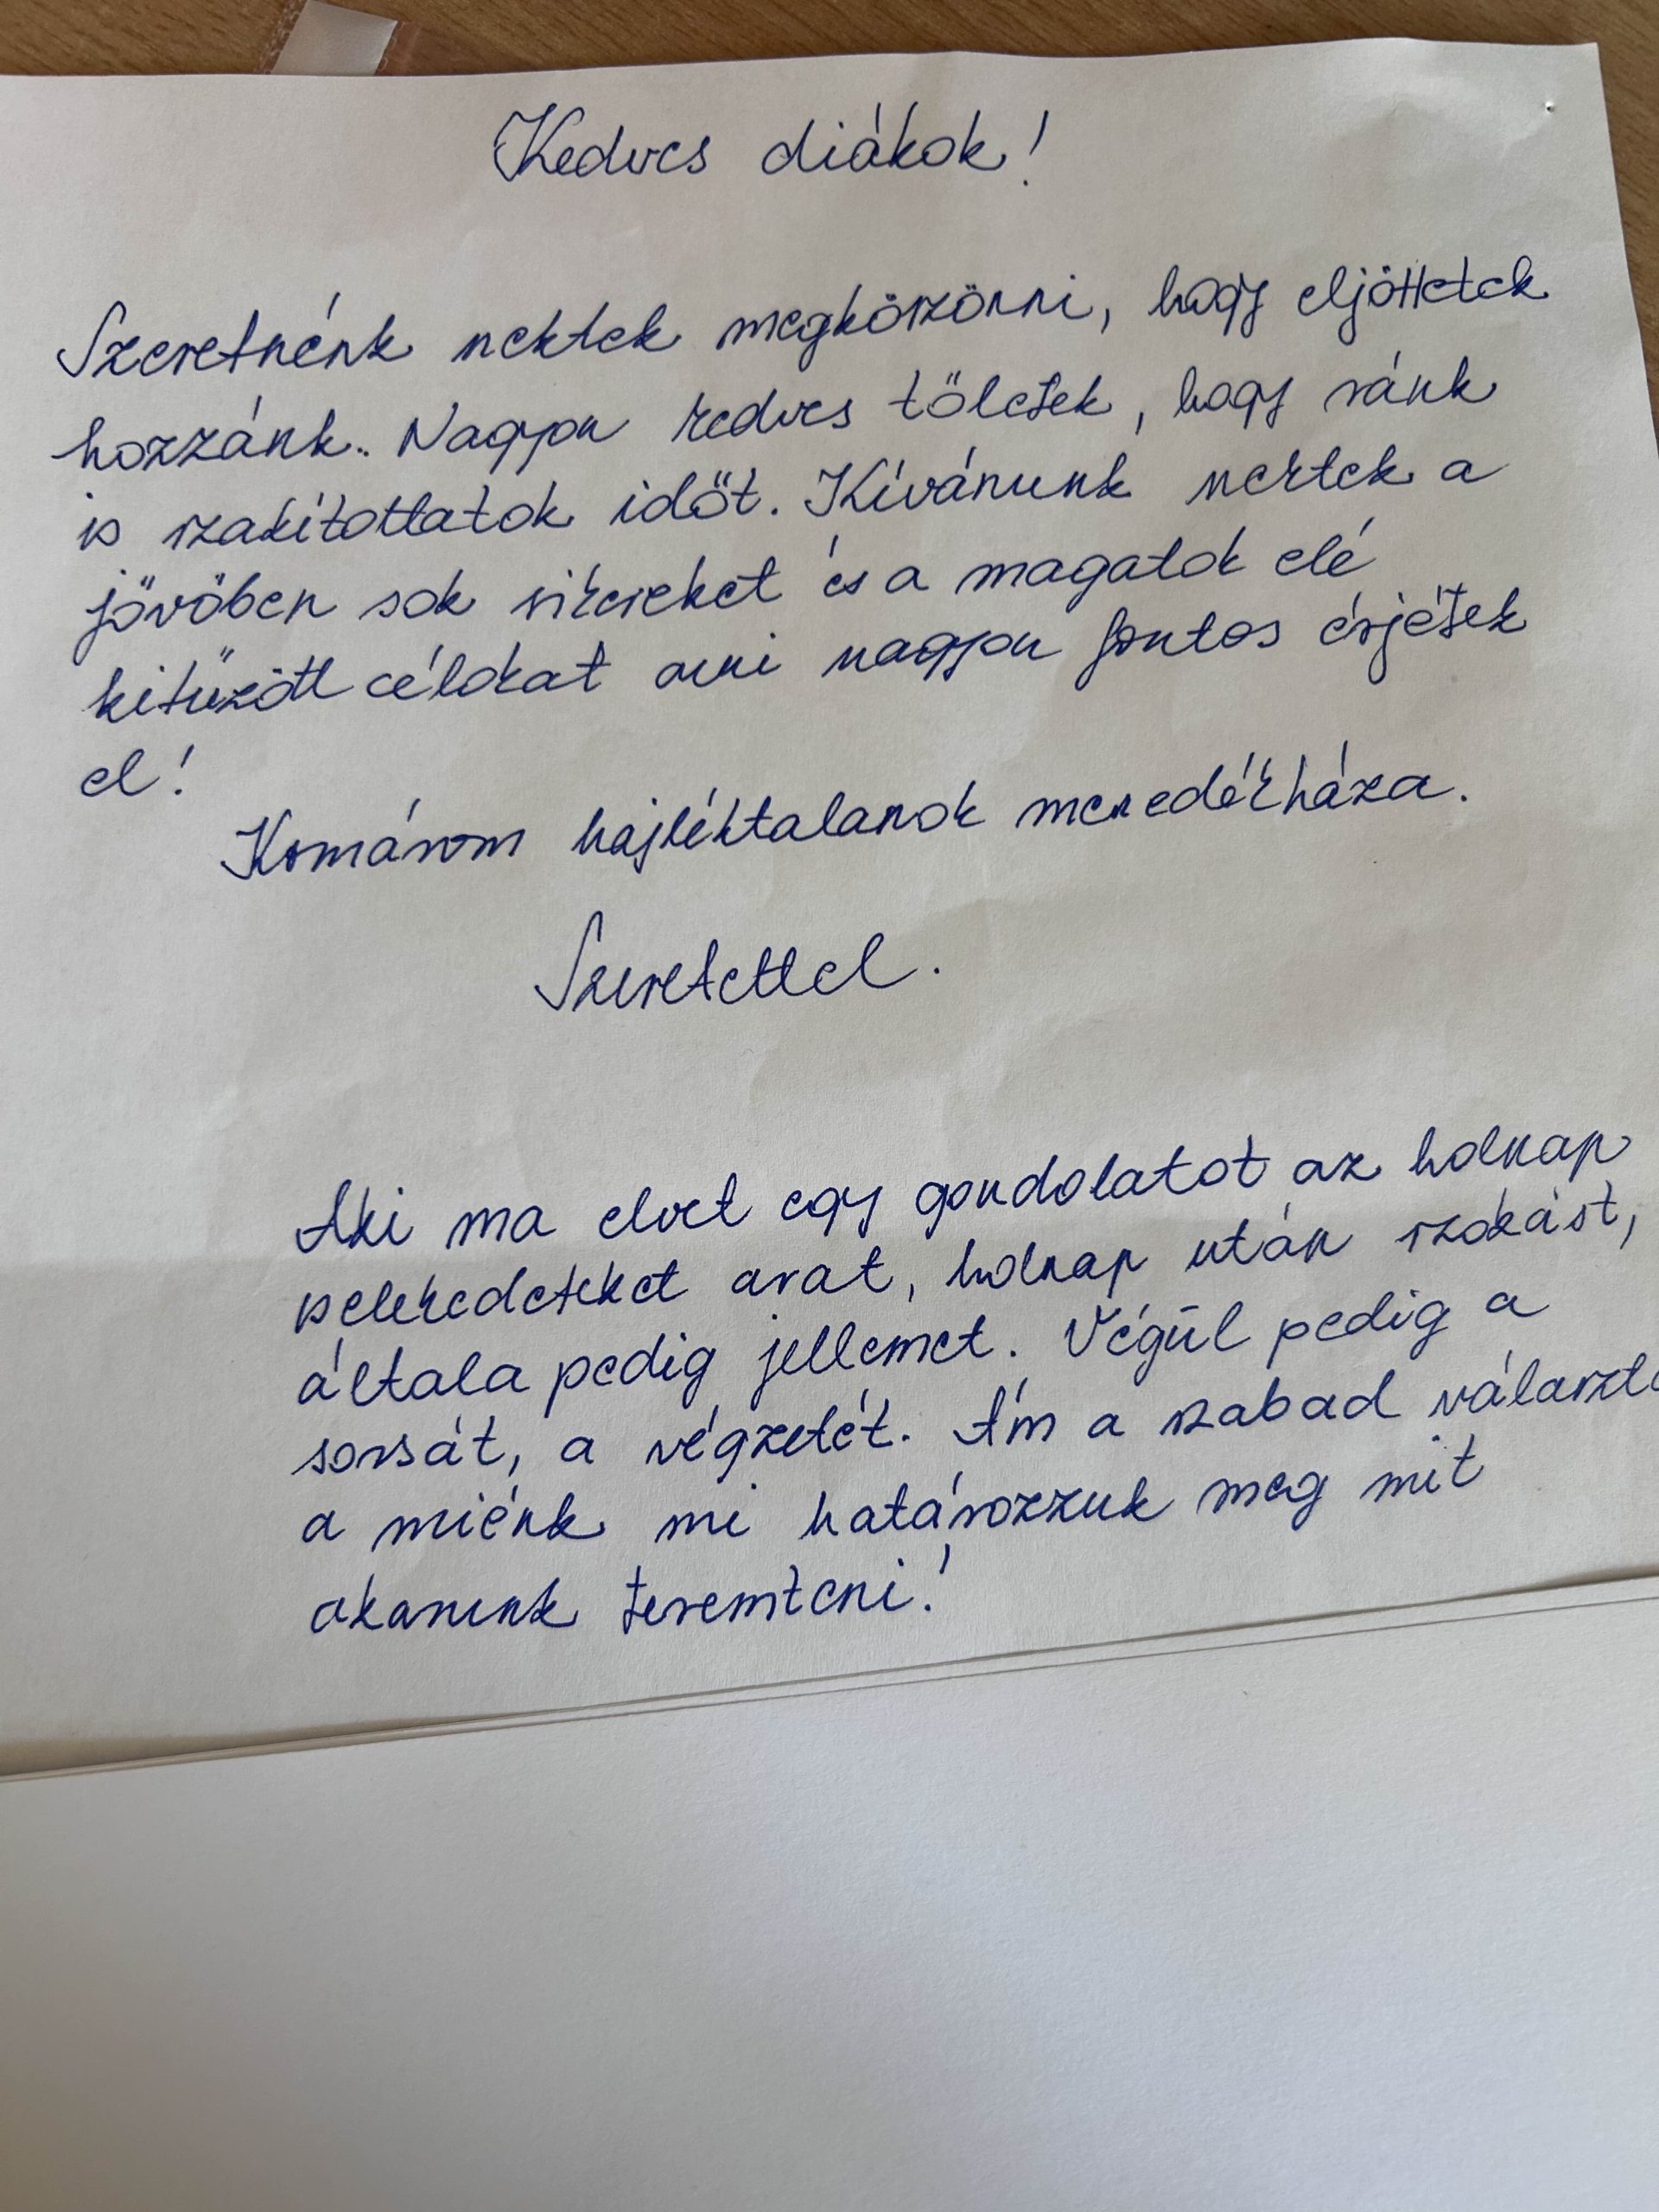 Kedves diákok!
Szeretnénk nektek megköszönni, hogy eljöttetek
hozzánk. Nagyon kedves tőletek, hogy ránk
is szakítottatok időt. Kívánunk nektek a
jövőben sok sikereket és a magatok elé
kitűzött célokat ami nagyon fontos érjétek
el!
Komárom hajléktalanok menedékháza.
Szeretettel.
Aki ma elvet egy gondolatot az holnap
cselekedeteket arat, holnap után szokást,
általa pedig jellemet. Végül pedig a
sorsát, a végzetét. Ám a szabad
a miénk mi határozzuk meg mit
akarunk teremteni!